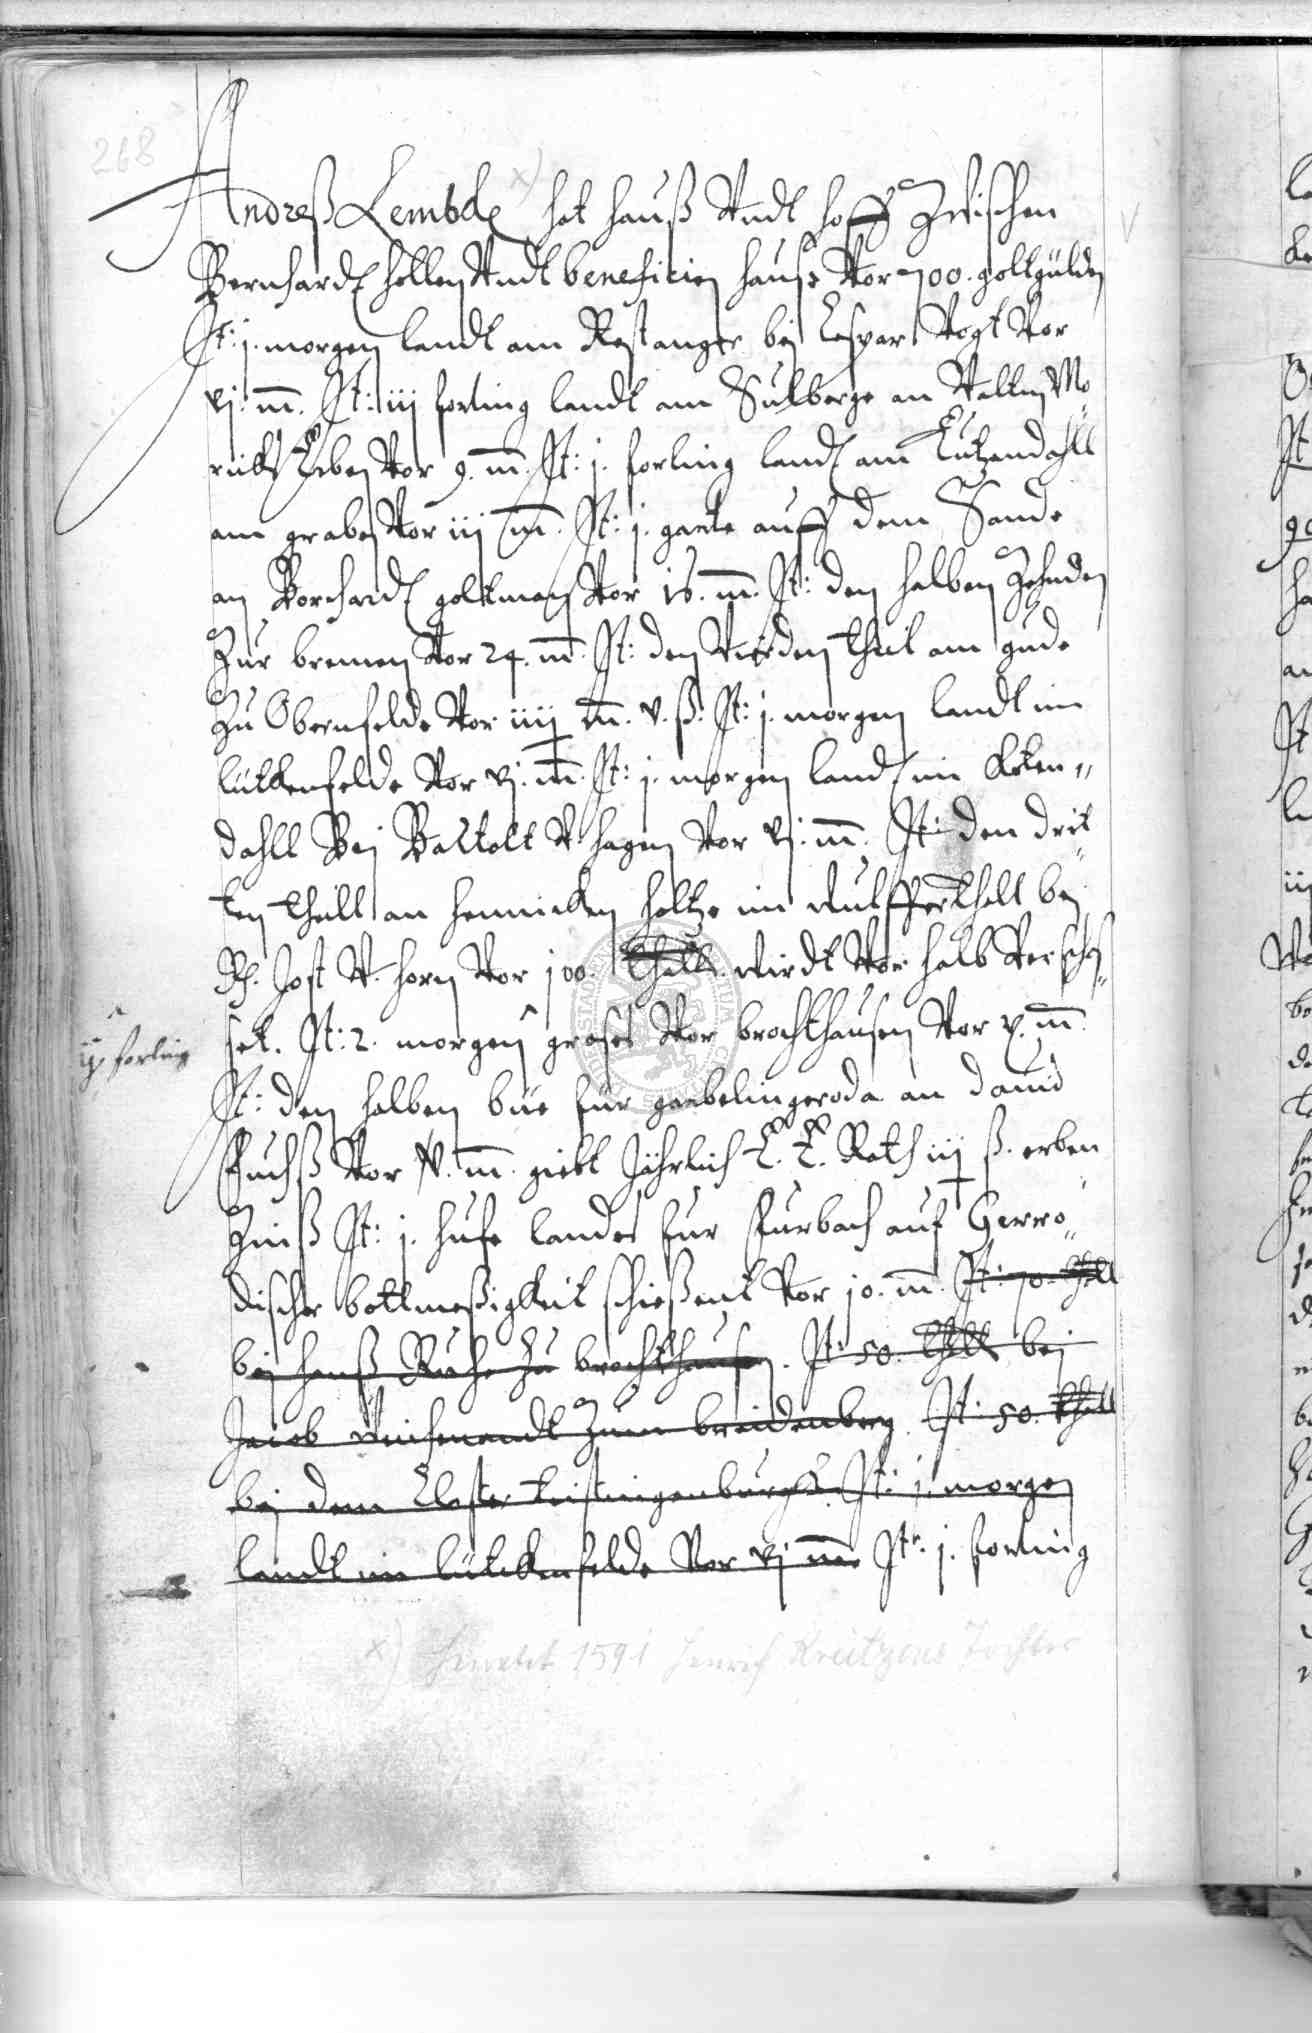 268
x)
Andreß Lembke hat hauß Vndt hoff Zwischen
Bernhardt hellen Vndt beneficien hause Vor 700. goltgülden
It: j. morgen landt am Rostanger bej Caspar Vogt Vor
vj. m. It: iij forling landt am Sulberge an Valtin Mo
ricks Erben Vor 9. m. It: j. forling landt am Lutzendahll
am graben Vor iij m. It: j. garte auff dem Sande
an Borchardt goltman Vor 18. m. It: den halben Zehnden
Zur bremen Vor 24. m. It: den Vierden theil am gude
Zu Obernfelde Vor iiij m. v. ß. It: j. morgen landt im
lütkenfelde Vor vj. m. It: j. morgen landt im
dahll Bej Bartolt V. hagen Vor vj. m. It: den drit
ten theill an henricken holtze im bej
H. Jost V. horn Vor 100. thall. wirdt Vor halb Verscho
set. It: 2. morgen grases Vor brochthausen Vor v. m.
ij forling
It: den halben büe für gerbelingeroda an dauid
Fuchß Vor v. m. giebt Jährlich E. E. Rath iij ß. erben
Zinß It: j. hufe landes fur Furbach auf Gerro
discher bottmeßigkeit schießent Vor 10. m. It: 70. thall
bej hanß Ruhe zu brochthausen. It: 50. thall bej
Jacob Zum breidenberg. It: 50. thall
bej dem Closter teistingenburgk. It: j. morgen
landt im lütckenfelde Vor vj m It. j. forling
x) heiratet 1591 Henrich Kreitzens Tochter